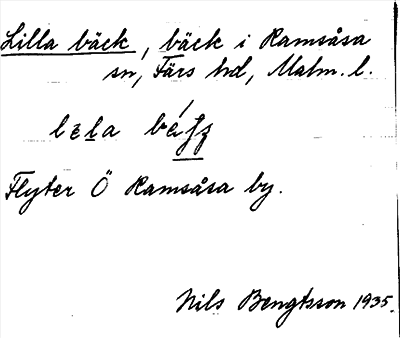 Lilla bäck, bäck i Ramsåsa
sn, Färs hd, Malm. l.
Flyter Ö Ramsåsa by.
Nils Bengtsson 1935.